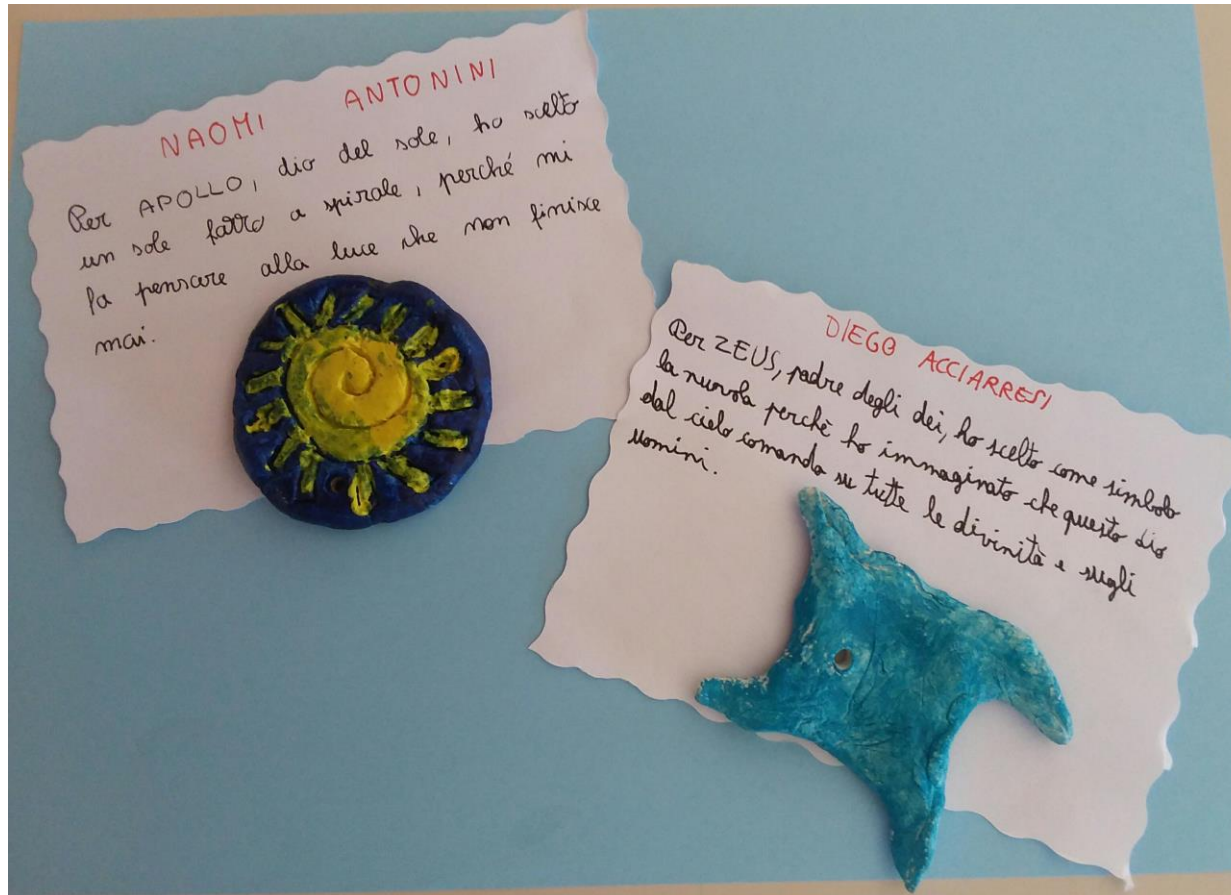 NAOMI ANTONINI
Per APOLLO, dio del sole, ho scelto
un sole fatto a spirale, perché mi
fa pensare alla luce che non finisce
mai.
DIEGO ACCIARRESI
Per ZEUS, padre degli dei, ho scelto come simbolo
la nuvola perchè ho immaginato che questo dio
dal cielo comanda su tutte le divinità e sugli
uomini.